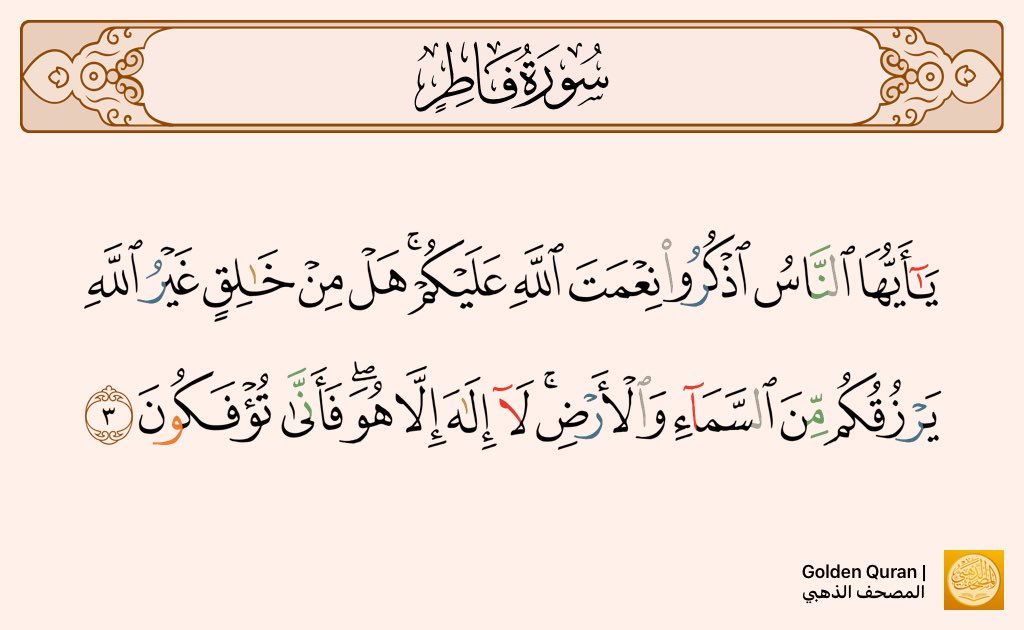 سُورَةُ فَاطِرٍ
يَـٰٓأَيُّهَا ٱلنَّاسُ ٱذْكُرُوا۟ نِعْمَتَ ٱللَّهِ عَلَيْكُمْ ۚ هَلْ مِنْ خَـٰلِقٍ غَيْرُ ٱللَّهِ
يَرْزُقُكُم مِّنَ ٱلسَّمَآءِ وَٱلْأَرْضِ ۚ لَآ إِلَـٰهَ إِلَّا هُوَ ۖ فَأَنَّىٰ تُؤْفَكُونَ ٣
Golden Quran |
المصحف الذهبي